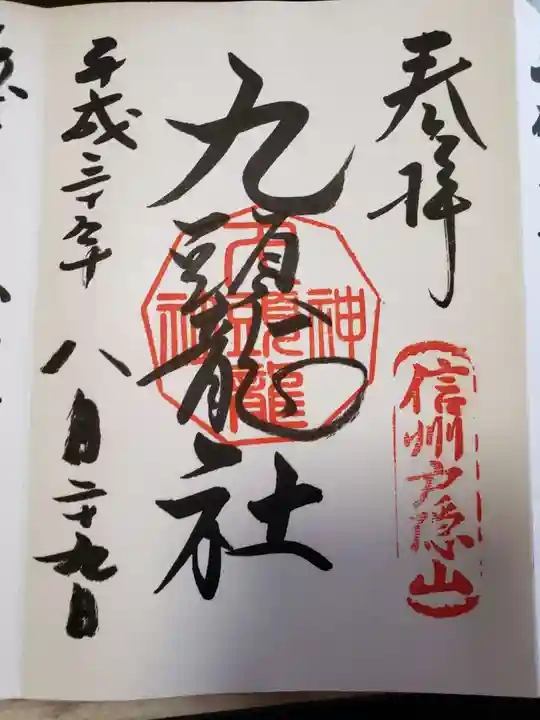 奉拝
信州戸隠山
九頭龍社
九頭龍
神社
平成三十年八月二十九日